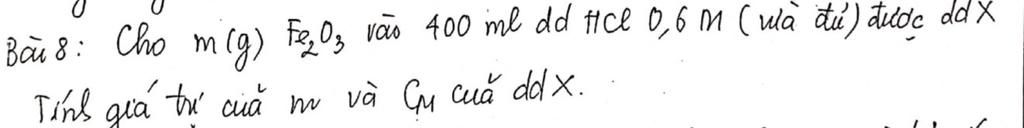 Bài 8: Cho m(g) Fe2O3 vào 400 ml dd HCl 0,6 M (vừa đủ) được dd X
Tính giá trị của m và CM của dd X.